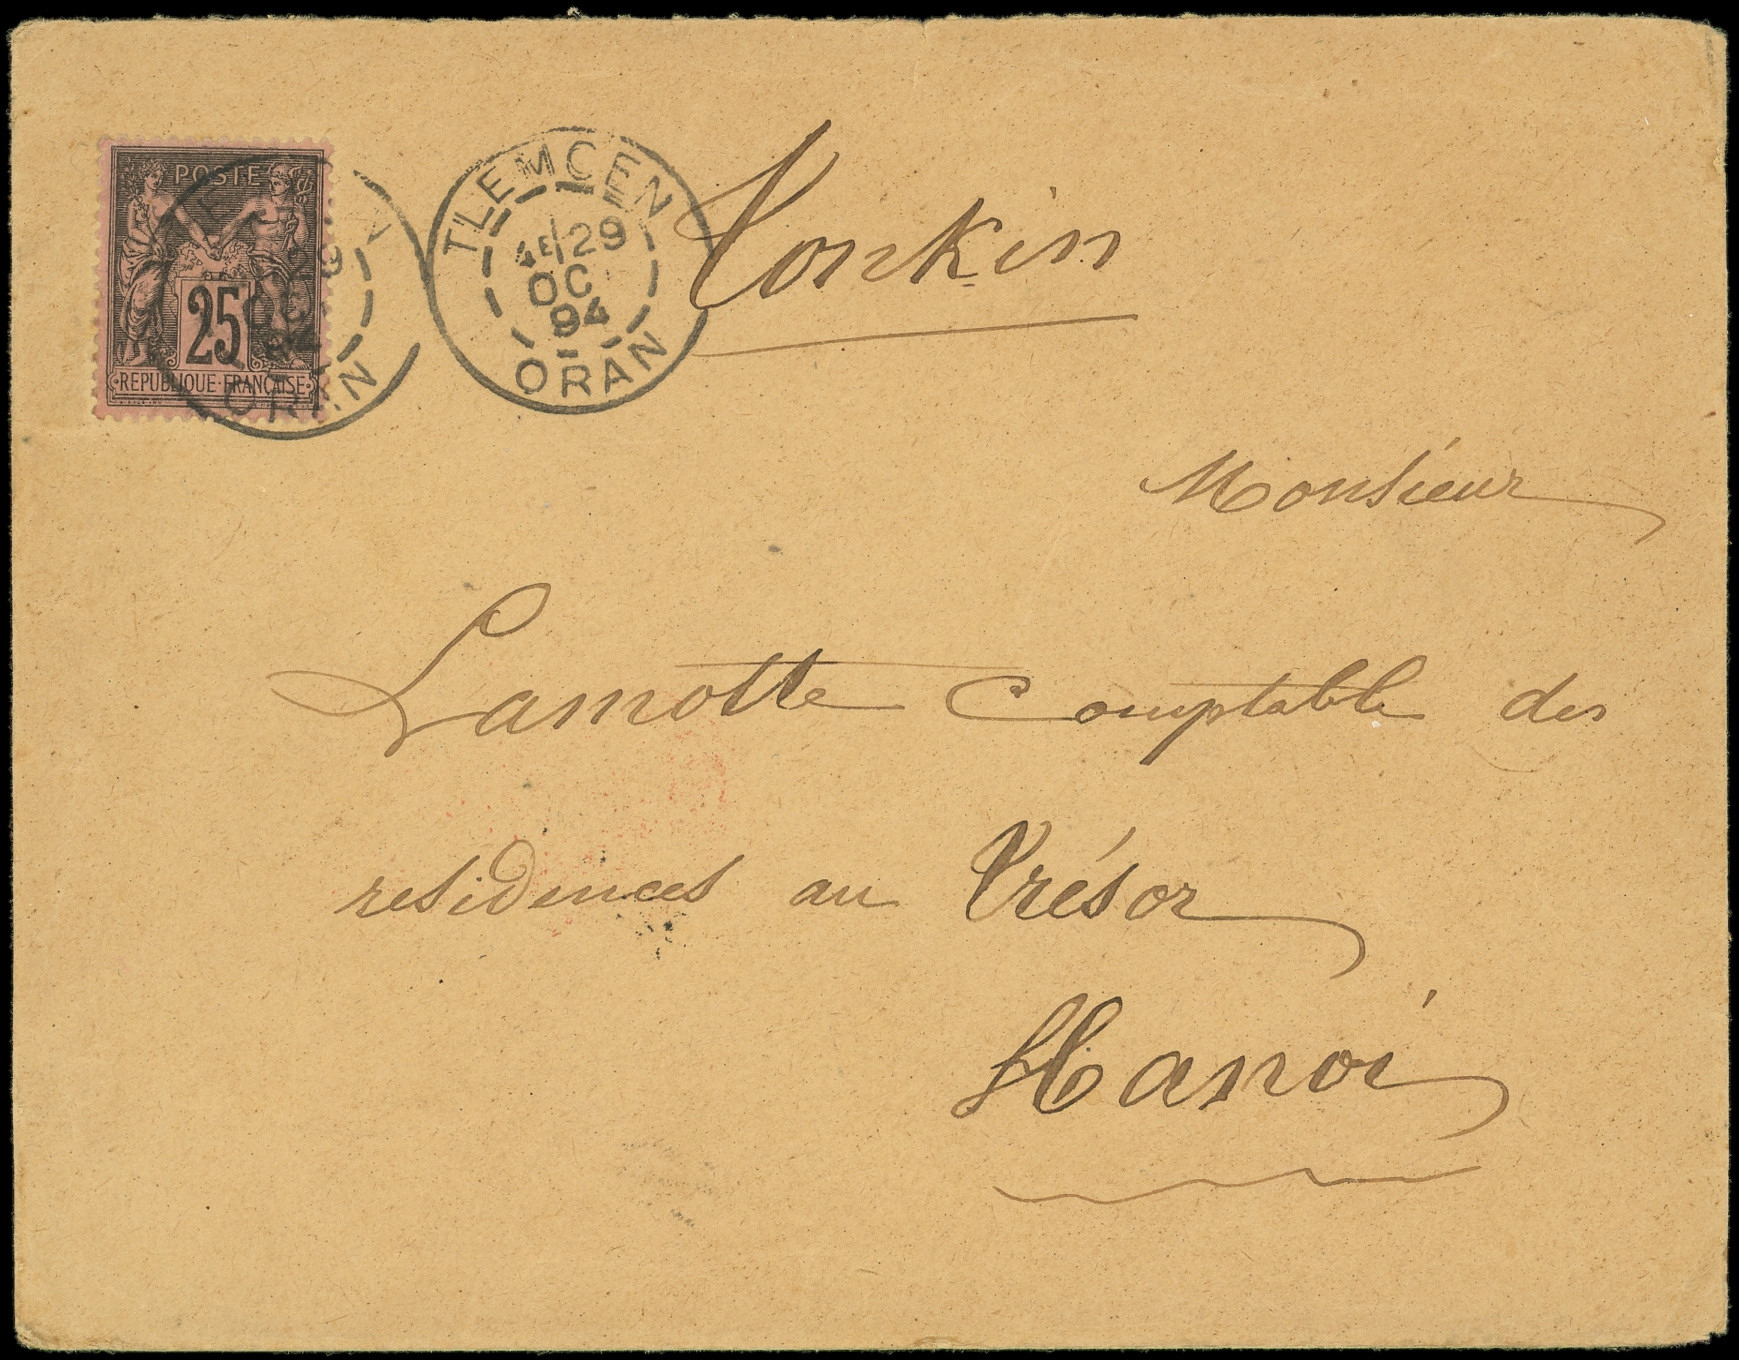 POSTE
25
REPUBLIQUE FRANÇAISE
ORAN
TLEMCEN
4E 29
OC
94
ORAN
Tonkin
Monsieur
Lamotte Comptable des
residences au Trésor
Hanoi